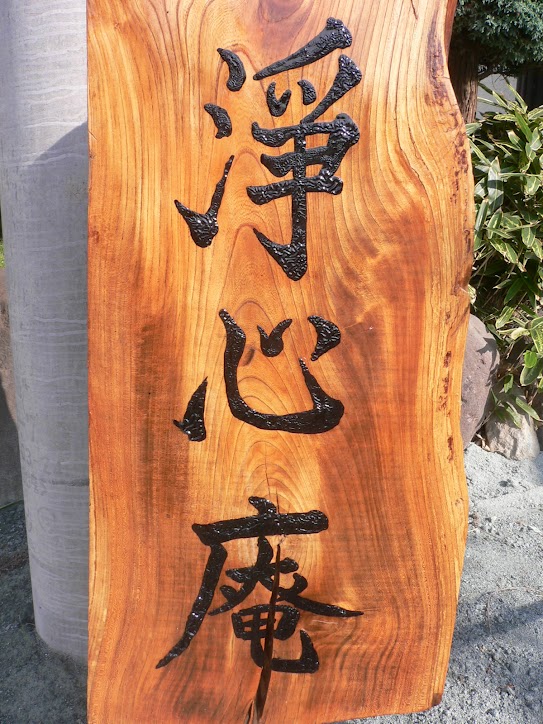 淨心庵